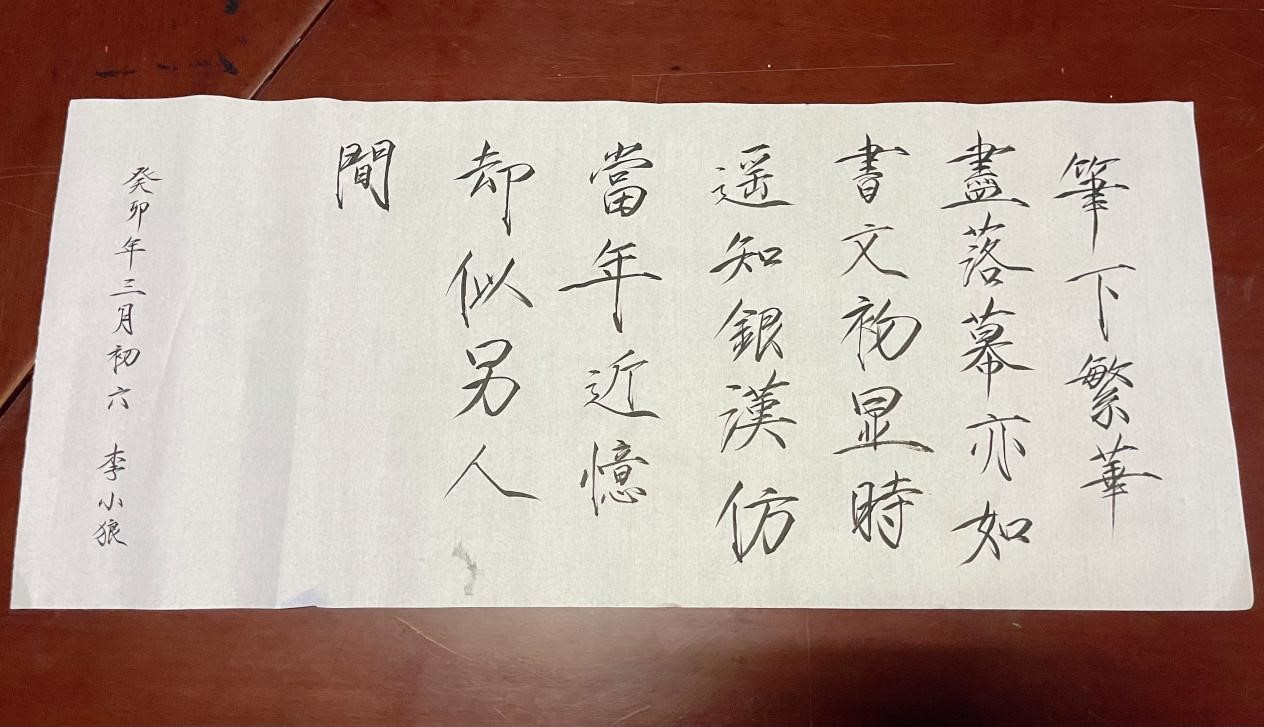 筆下繁華
盡落幕亦如
書文初显時
遥知銀漢仿
當年近憶
却似另人
間
癸卯年三月初六 李小狼